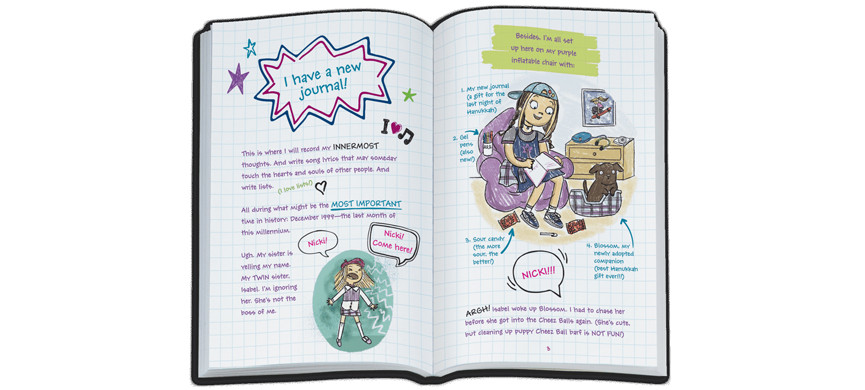 I have a new
journal!
I
This is where I will record my INNERMOST
thoughts. And write song lyrics that may someday
touch the hearts and souls of other people. And
write lists.
(I love lists!)
All during what might be the MOST IMPORTANT
time in history: December 1999—the last month of
this millennium.
Nicki!
Nicki!
Come here!
Ugh. My sister is
yelling my name.
My TWIN sister,
Isabel. I'm ignoring
her. She's not the
boss of me.
Besides, I'm all set
up here on my purple
inflatable chair with:
1. My new journal
(a gift for the
last night of
Hanukkah)
2. Gel
pens
(also
new!)
3. Sour candy
(the more
sour, the
better!)
4. Blossom, my
newly adopted
companion
(best Hanukkah
gift ever!!!)
NICKI!!!
ARGH! Isabel woke up Blossom. I had to chase her
before she got into the Cheez Balls again. (She's cute,
but cleaning up puppy Cheez Ball barf is NOT FUN!)
3